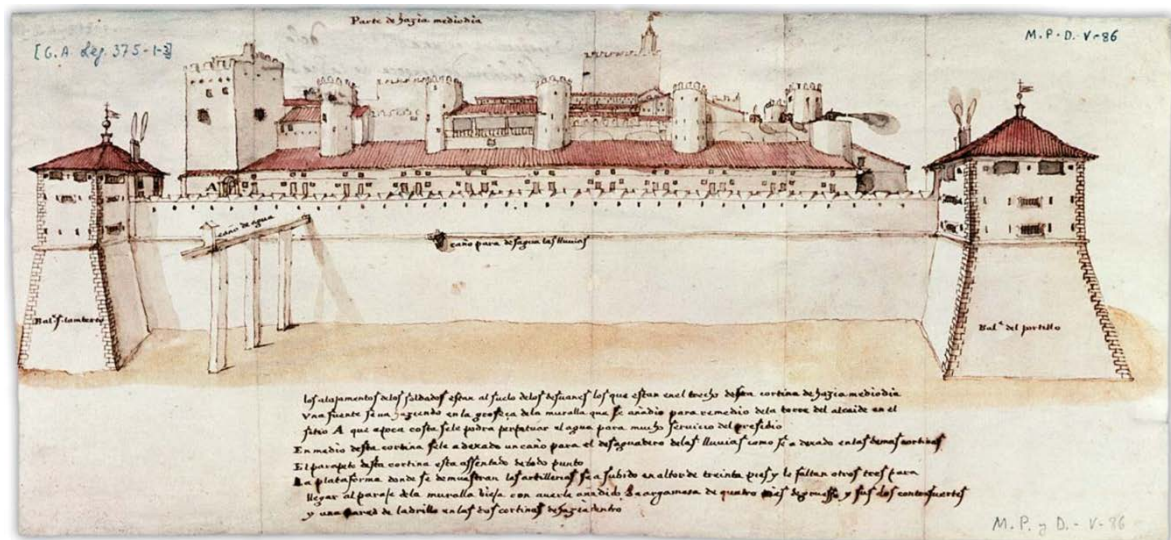 Parte de hazia mediodia
[G.A Leg. 375-1-3]
M.P.D.-V-86
A
caño de agua
caño para desagua las lluvias
Bal.te S. lamberto
Bal.te del portillo
los alojamentos delos soldados estan al suelo delos desuanes los que estan en el trecho desta cortina de hazia mediodia
Vna fuente se ua haziendo en la groseça dela muralla que se añadio para remedio dela torre del alcaide en el
sitio A que a poca costa se le podra perpetuar el agua para mucho seruicio del presidio
En medio desta cortina se le a dexado un caño para el desaguadero delas lluvias como se a dexado en las demas cortinas
El parapeto desta cortina esta assentado de todo punto
La plataforma donde se demuestran las artillerias se a subido en altor de treinta pies y le faltan otros tres para
llegar al paraje dela muralla bieja con auerle añadido de argamasa de quatro pies de gruesso y sus dos contrafuertes
y una pared de ladrillo en las dos cortinas de hazia dentro
M.P. y D. - V - 86